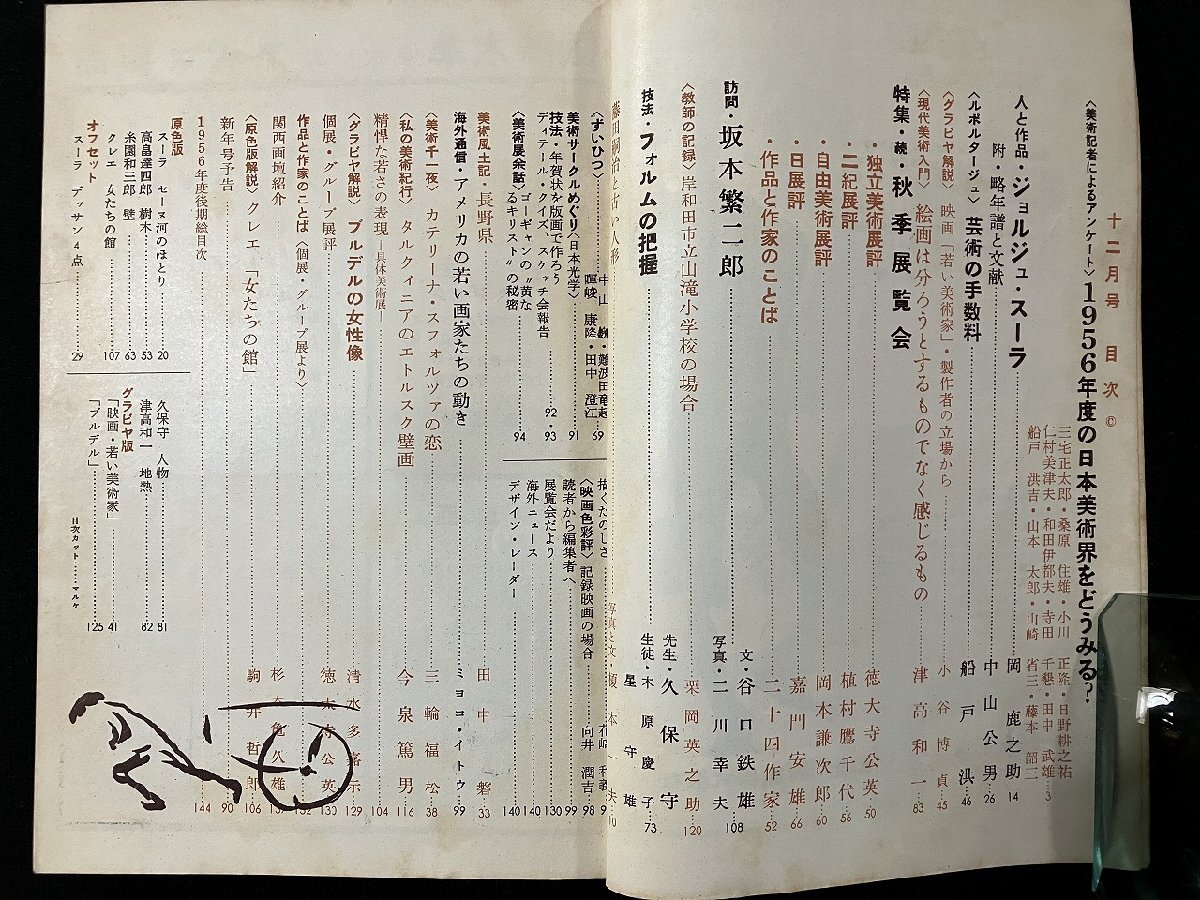 十二月号 目次 ©
〈美術記者によるアンケート〉1956年度の日本美術界をどうみる?
三宅正太郎・桑原 住雄・小川 正隆・日野耕之祐
仁村美津夫・和田伊都夫・寺田 千墾・田中 武雄…3
船戸 洪吉・山本 太郎・山崎 省三・藤本 韶三
人と作品・ジョルジュ・スーラ 岡 鹿之助 14
附・略年譜と文献 中山公男 26
〈ルポルタージュ〉芸術の手数料 船戸 洪 46
〈グラビヤ解説〉映画「若い美術家」・製作者の立場から 小谷博貞 45
〈現代美術入門〉絵画は分ろうとするものでなく感じるもの 津高和一 83
特集・続・秋季展覧会
・独立美術展評 徳大寺公英 50
・二紀展評 植村鷹千代 56
・自由美術展評 岡本謙次郎 60
・日展評 嘉門安雄 66
・作品と作家のことば 二十四作家 52
訪問・坂本繁二郎 文・谷口鉄雄 写真・二川幸夫 108
〈教師の記録〉岸和田市立山滝小学校の場合 栗岡英之助 120
技法・フォルムの把握 先生・久保 守 生徒・木原慶子 星 守雄 73
藤田嗣治と古い人形 写真と文・榎本 夫 10
〈ずいひつ〉 中山 ・難波田竜起 康隆・田中 澄江 59
美術サークルめぐり〈日本光学〉 91
技法・年賀状を版画で作ろう 92
ディテール・クイズ、スケッチ会報告 93
〈美術展余話〉ゴーギャンの〝黄な
るキリスト〟の秘密 94
描くたのしさ
〈映画色彩評〉記録映画の場合 向井 潤吉 98
読者から編集者へ 99
展覧会だより 130
海外ニュース 140
デザイン・レーダー 140
美術風土記・長野県 田中 磐 33
海外通信・アメリカの若い画家たちの動き ミヨコ・イトウ 99
〈美術千一夜〉カテリーナ・スフォルツァの恋 三輪福松 38
〈私の美術紀行〉タルクィニアのエトルスク壁画 今泉篤男 116
精悍な若さの表現―具体美術展― 104
〈グラビヤ解説〉ブルデルの女性像 清水多嘉示 129
個展・グループ展評 徳大寺公英 130
作品と作家のことば〈個展・グループ展より〉 132
関西画壇紹介 杉 久雄 137
〈原色版解説〉クレエ「女たちの館」 駒井哲郎 106
新年号予告 90
1956年度後期総目次 144
原色版
スーラ セーヌ河のほとり 20
高畠達四郎 樹木 53
糸園和三郎 壁 63
クレエ 女たちの館 107
オフセット
スーラ デッサン4点 29
久保守 人物 81
津高和一 地熱 82
グラビヤ版
「映画・若い美術家」 41
「ブルデル」 125
目次カット……マルケ